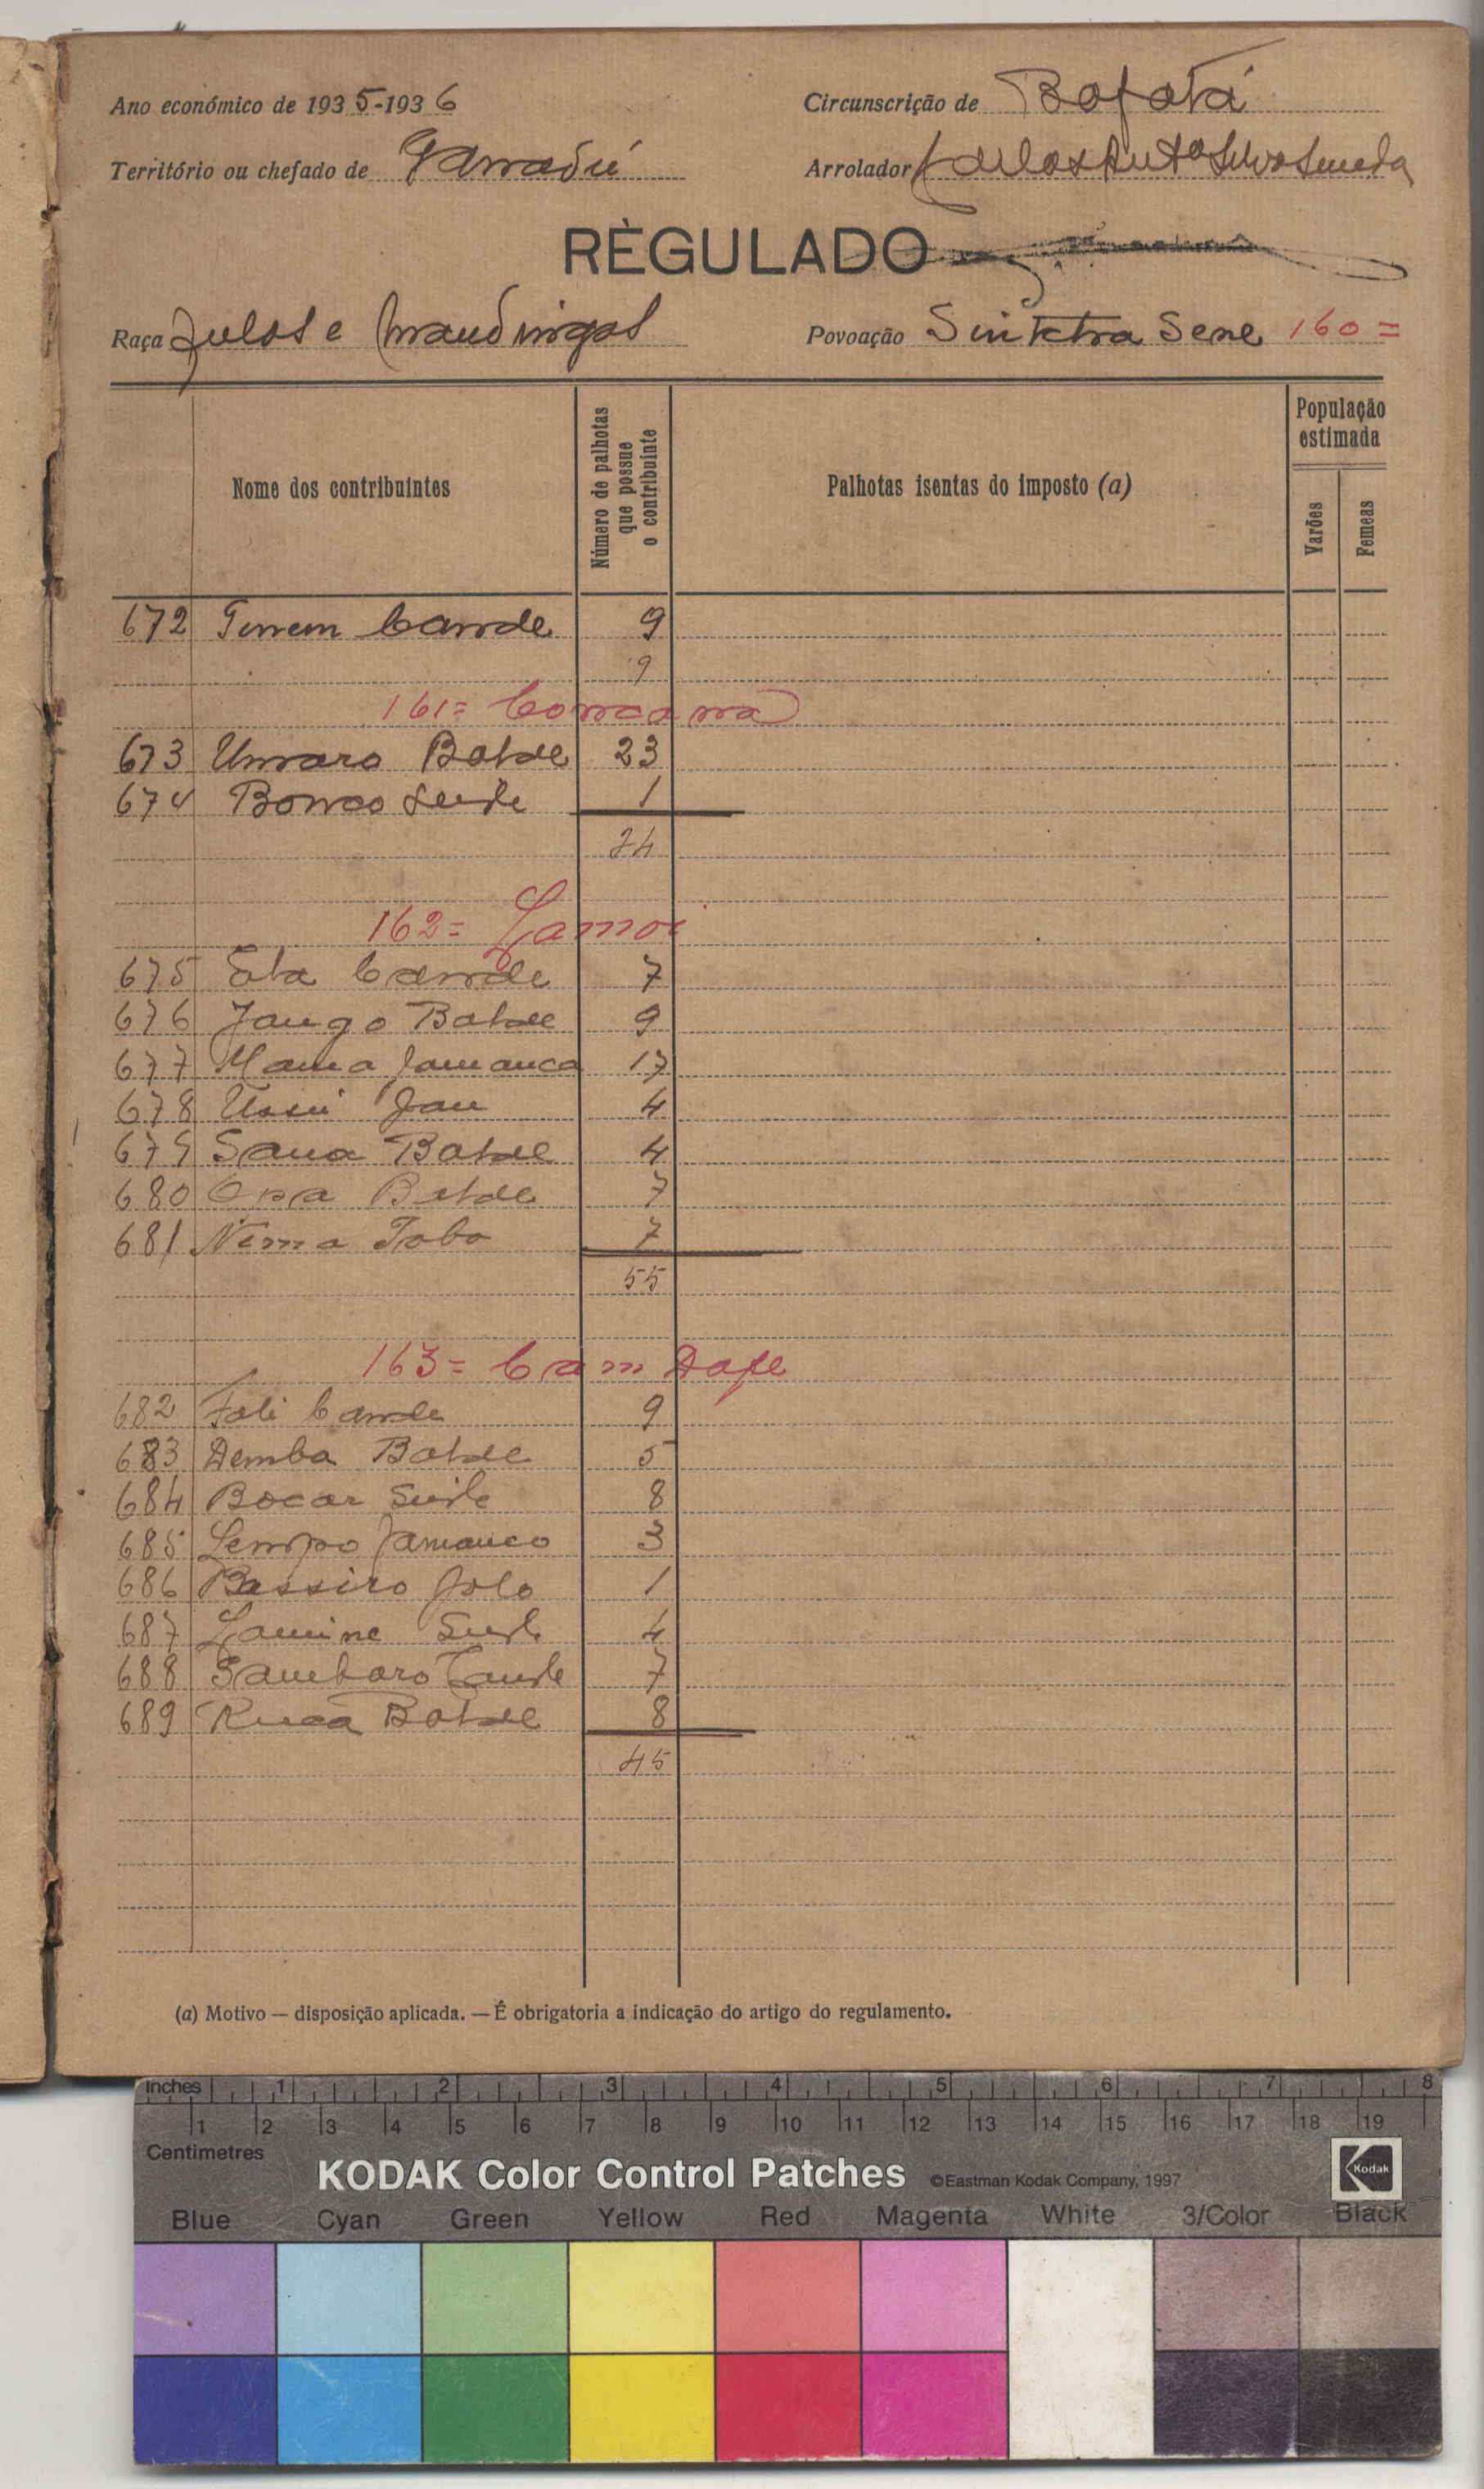 Ano económico de 1935-1936
Circunscrição de Bafatá
Território ou chefado de Ganadú
Arrolador Carlos Silva
RÈGULADO
Raça Fulas e Mandingas
Povoação Sintchã Sene 160=
Nome dos contribuintes
Número de palhotas que possue o contribuinte
Palhotas isentas do imposto (a)
População estimada
Varões
Femeas
672 Cande 9
9
161=
673 Umaro Balde 23
674 Bonco Seide 1
24
162= Gamoi
675 Cande 7
676 Jango Balde 9
677 Mama Jamanca 17
678 Ussú Jau 4
679 Sana Balde 4
680 Balde 7
681 Nema 7
55
163= Cam Dafe
682 Fali Cande 9
683 Demba Balde 5
684 Bocar Seide 8
685 Lempo Jamanco 3
686 Bassiro Jolo 1
687 Lamine Seide 4
688 Sambaro Cande 7
689 Balde 8
45
(a) Motivo — disposição aplicada. — É obrigatoria a indicação do artigo do regulamento.
inches 1 2 3 4 5 6 7 8
1 2 3 4 5 6 7 8 9 10 11 12 13 14 15 16 17 18 19
Centimetres
KODAK Color Control Patches ©Eastman Kodak Company, 1997 Kodak
Blue Cyan Green Yellow Red Magenta White 3/Color Black